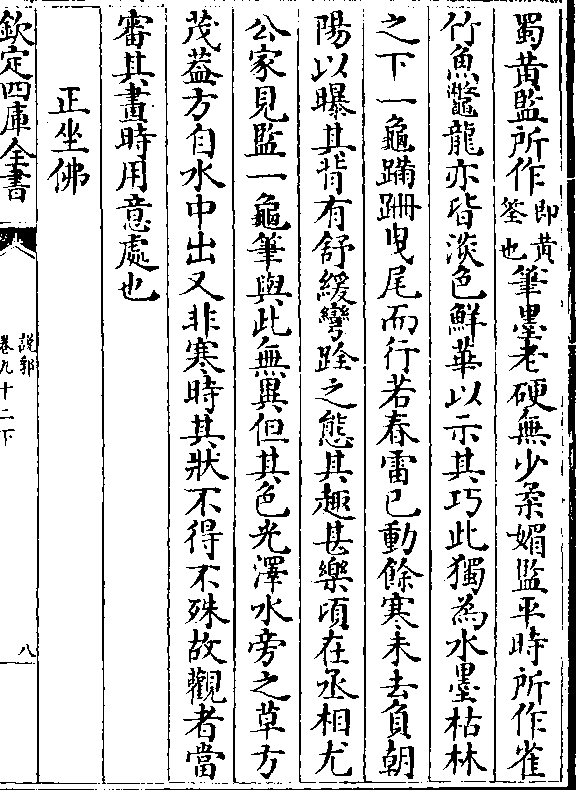 蜀黄監所作即黄筌也筆墨老硬無少柔媚監平時所作雀
竹魚鼈龍亦皆淡色鮮華以示其巧此獨為水墨枯林
之下一龜蹣跚曳尾而行若春雷已動餘寒未去負朝
陽以曝其背有舒緩彎跧之態其趣甚樂頃在丞相尤
公家見監一龜筆與此無異但其色光澤水旁之草方
茂葢方自水中出又非寒時其狀不得不殊故觀者當
審其畫時用意處也
正坐佛
欽定四庫全書
說郛
卷九十二下
八